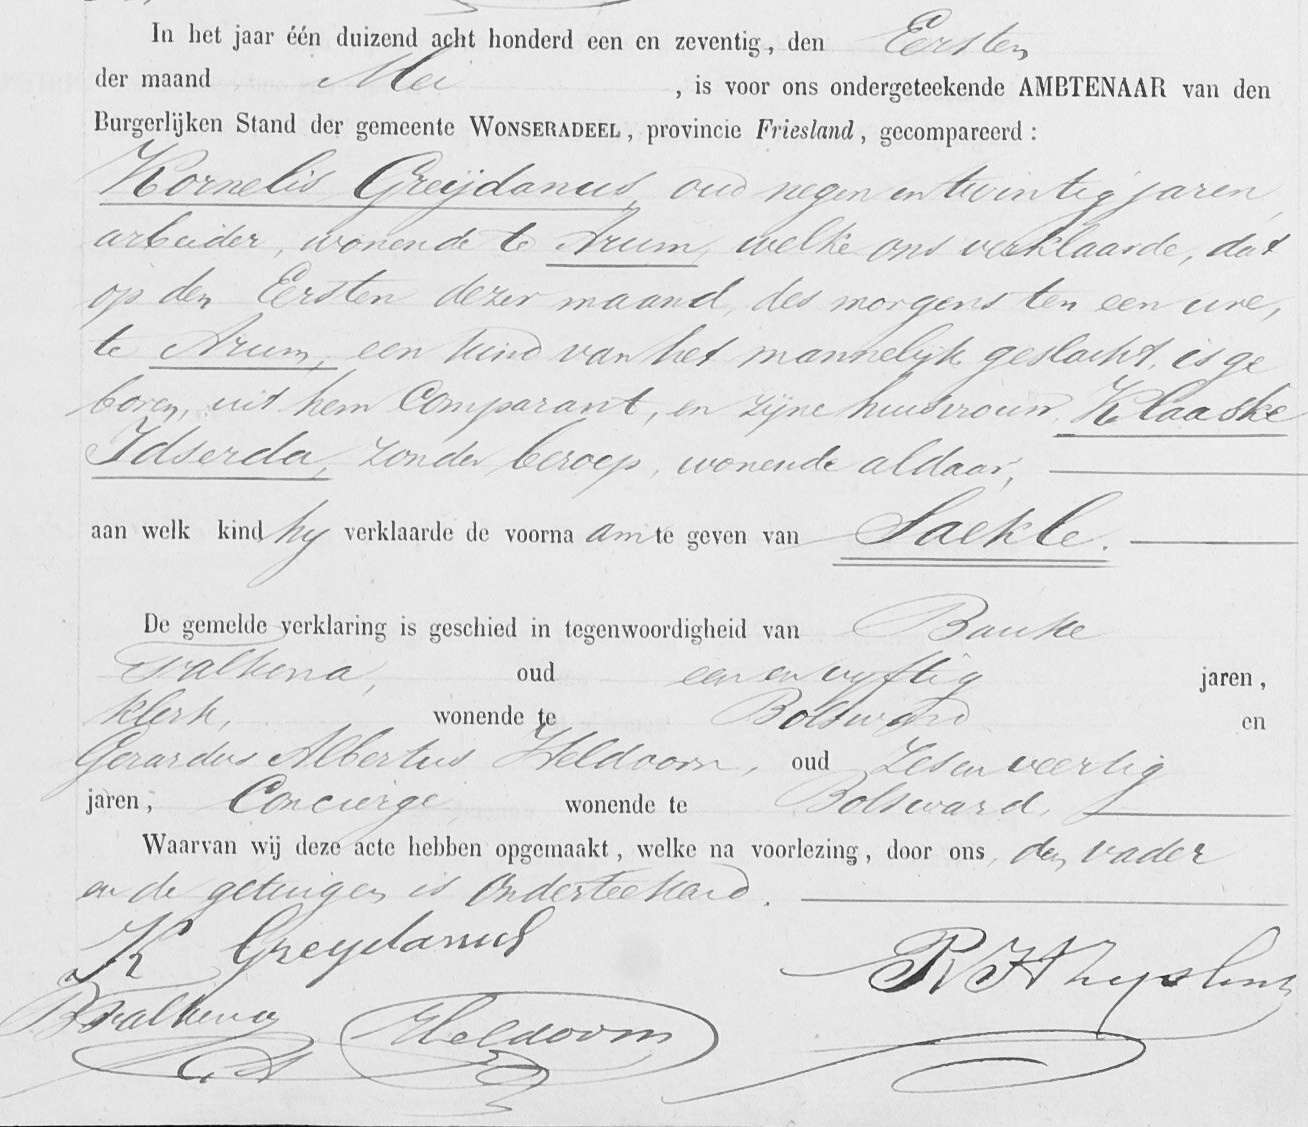 In het jaar één duizend acht honderd een en zeventig, den Eersten
der maand Mei , is voor ons ondergeteekende AMBTENAAR van den
Burgerlijken Stand der gemeente WONSERADEEL, provincie Friesland, gecompareerd:
Kornelis Greijdanus, oud negen en twintig jaren,
arbeider, wonende te Arum, welke ons verklaarde, dat
op den Eersten dezer maand, des morgens ten een ure,
te Arum, een kind van het mannelijk geslacht, is ge
boren, uit hem Comparant, en zijne huisvrouw, Klaaske
Idserda, zonder beroep, wonende aldaar,
aan welk kind hy verklaarde de voorna am te geven van Saekle.
De gemelde verklaring is geschied in tegenwoordigheid van Bauke
Falkena, oud een en vyftig jaren,
klerk, wonende te Bolsward en
Gerardus Albertus Heldoorn, oud zes en veertig
jaren, Concierge wonende te Bolsward,
Waarvan wij deze acte hebben opgemaakt, welke na voorlezing, door ons, den vader
en de getuigen is Onderteekend.
K Greydanus
B Falkena Heldoorn